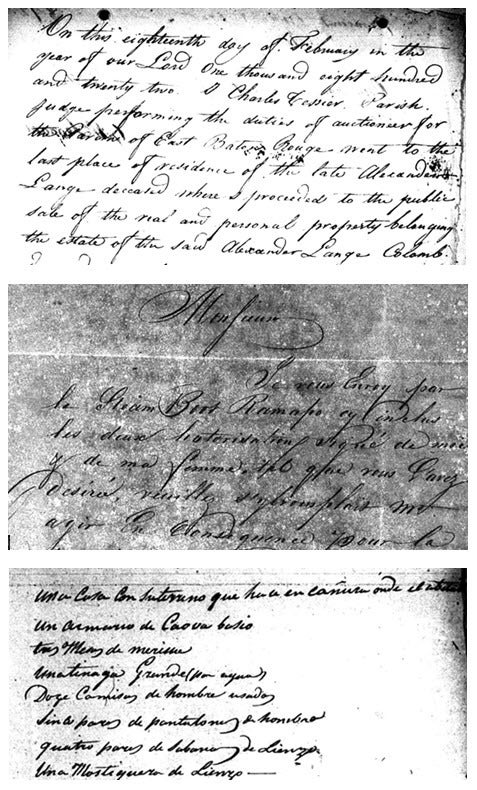 On this eighteenth day of February in the
year of our Lord One thousand eight hundred
and twenty two. I Charles Tessier Parish.
judge performing the duties of auctionier for
the Parish of East Baton Rouge went to the
last place of residence of the late Alexander
Lange deceased where I proceeded to the public
sale of the real and personal property belonging
the estate of the said Alexander Lange Colomb.
Monsieur
Je vous Envoy par
le Steam Boot Ramapo cy inclus
les deux hotorisation signé de moi
y de ma femme, tel que vous l'avez
désiré, veuille sylvousplait me
agir En Consequence pour la
una Casa con suterrano que hace en
un armario de Caova basio
tres Mesas de merisse
una tinaja Grande (por agua)
Doze Camisas de hombre usadas
sinco pares de pantalones de hombre
quatro pares de Sabanas de Lienzo
Una Mostiquera de Lienzo